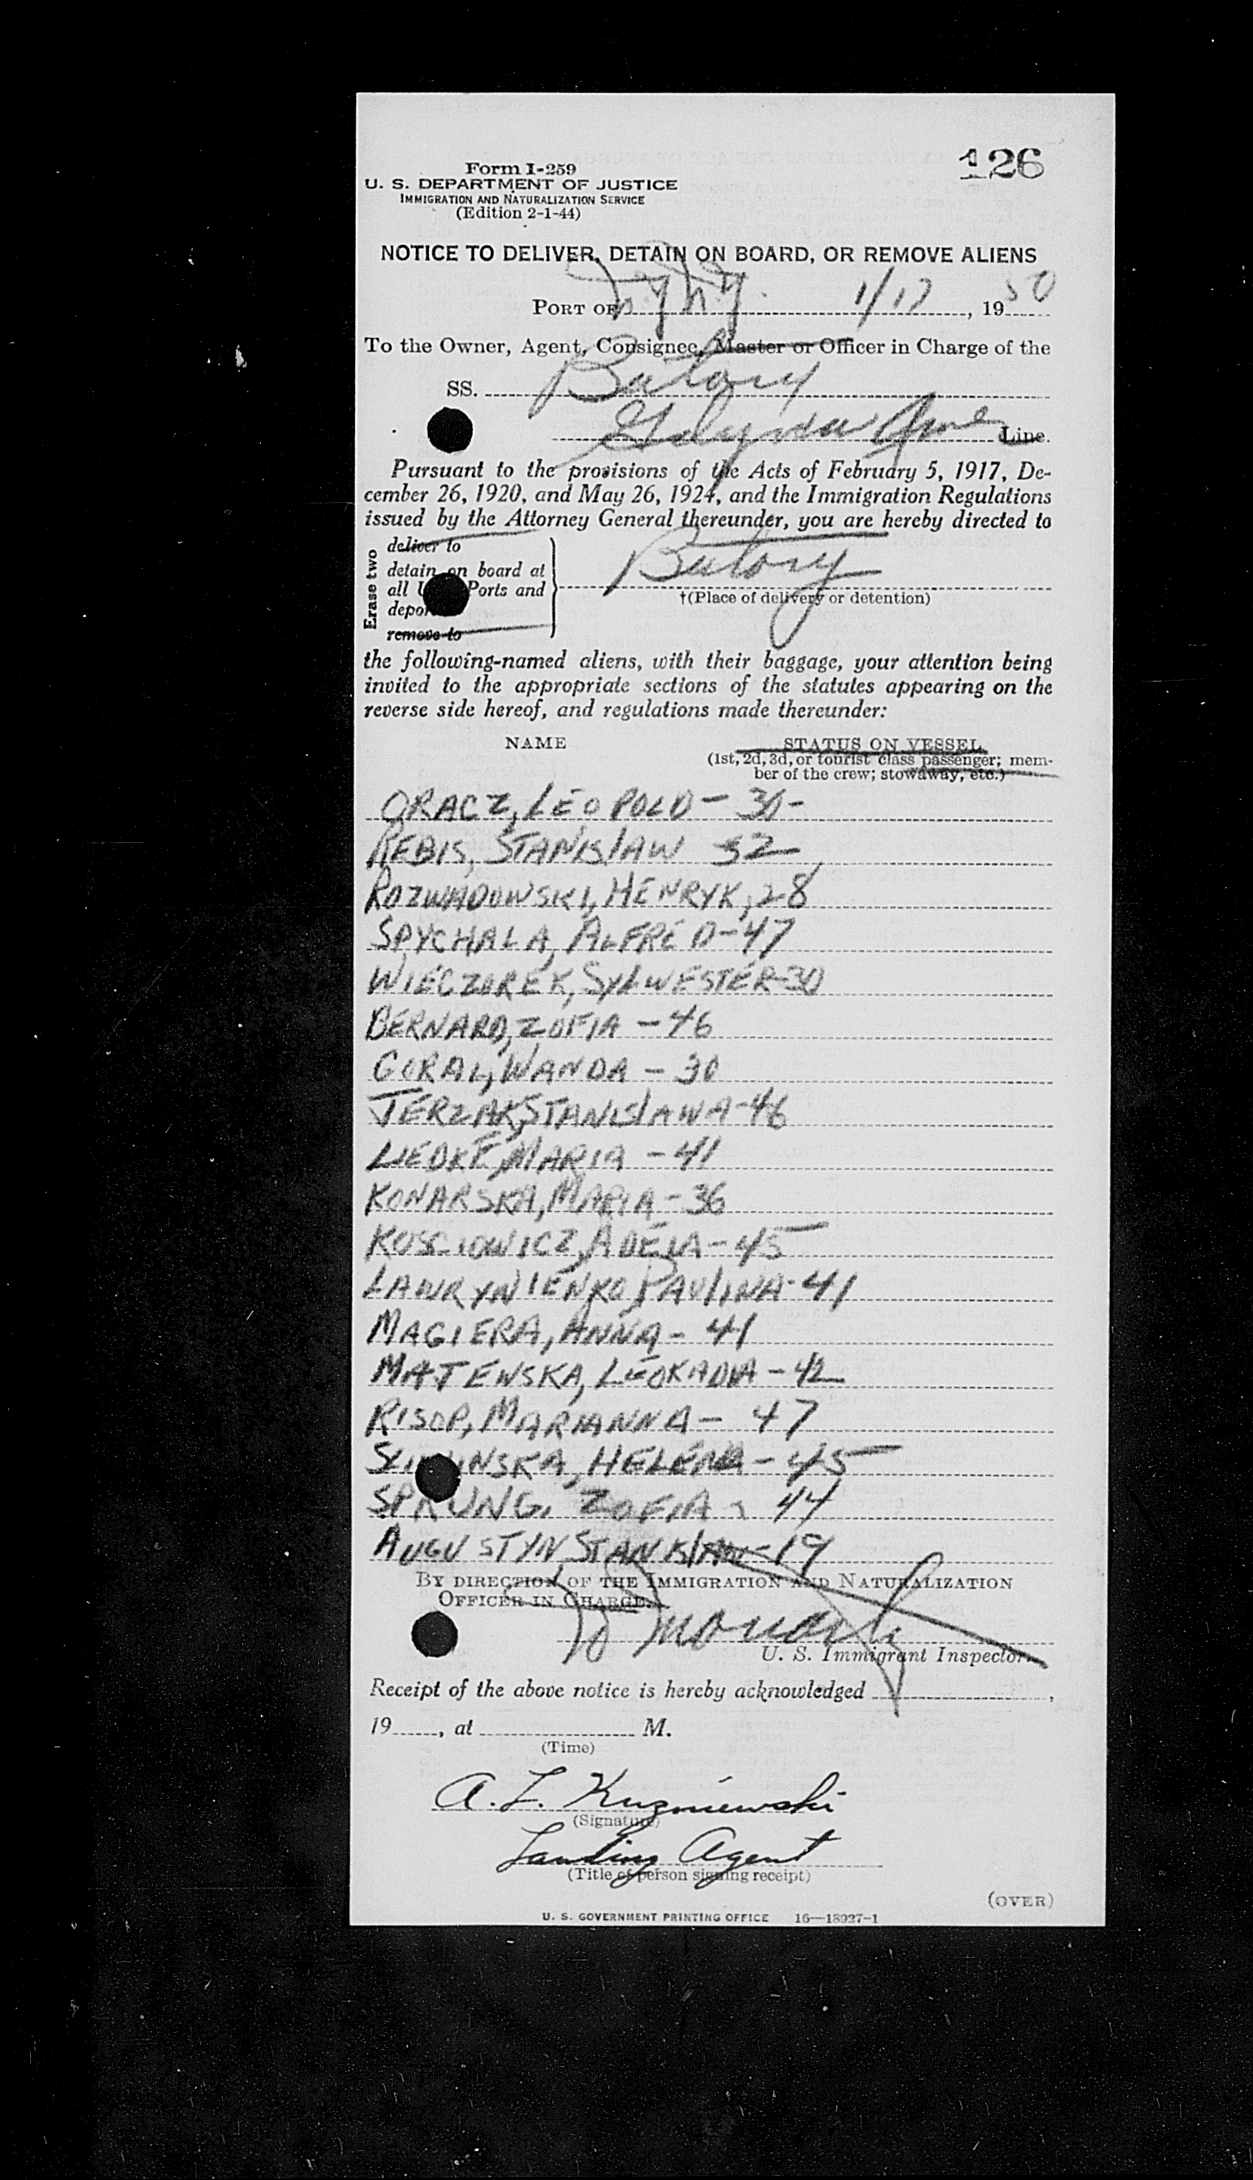 126
Form I-259
U. S. DEPARTMENT OF JUSTICE
IMMIGRATION AND NATURALIZATION SERVICE
(Edition 2-1-44)
NOTICE TO DELIVER, DETAIN ON BOARD, OR REMOVE ALIENS
PORT OF 1/17, 1950
To the Owner, Agent, Consignee, Master or Officer in Charge of the
SS. Batory
Gdynia Amer Line.
Pursuant to the provisions of the Acts of February 5, 1917, De-
cember 26, 1920, and May 26, 1924, and the Immigration Regulations
issued by the Attorney General thereunder, you are hereby directed to
Erase two
deliver to
detain on board at
all Ports and
remove to
Batory
†(Place of delivery or detention)
the following-named aliens, with their baggage, your attention being
invited to the appropriate sections of the statutes appearing on the
reverse side hereof, and regulations made thereunder:
NAME STATUS ON VESSEL
(1st, 2d, 3d, or tourist class passenger; mem-
ber of the crew; stowaway, etc.)
ORACZ, LEOPOLD - 30-
REBIS, STANISlAW 32
ROZWADOWSKI, HENRYK, 28
SPYCHALA, ALFRED - 47
WIECZOREK, SYLWESTER-30
BERNARD, ZOFIA - 46
GORAL, WANDA - 30
JERZAK, STANISlAWA-46
LIEDKE, MARIA - 41
KONARSKA, MARIA - 36
KOSCIOWICZ, ADELA - 45
LAWRYNIENKO, PAUlINA-41
MAGIERA, ANNA - 41
MAJEWSKA, LEOKADIA - 42
RISOP, MARIANNA - 47
HELENA - 45
SPRUNG, ZOFIA 44
AUGUSTYN STANISlAW-19
BY DIRECTION OF THE IMMIGRATION AND NATURALIZATION
OFFICER IN CHARGE.
U. S. Immigrant Inspector.
Receipt of the above notice is hereby acknowledged ,
19 , at M.
(Time)
A. L. Kuzniewski
(Signature)
Landing Agent
(Title of person signing receipt)
(OVER)
U. S. GOVERNMENT PRINTING OFFICE 16—18927-1